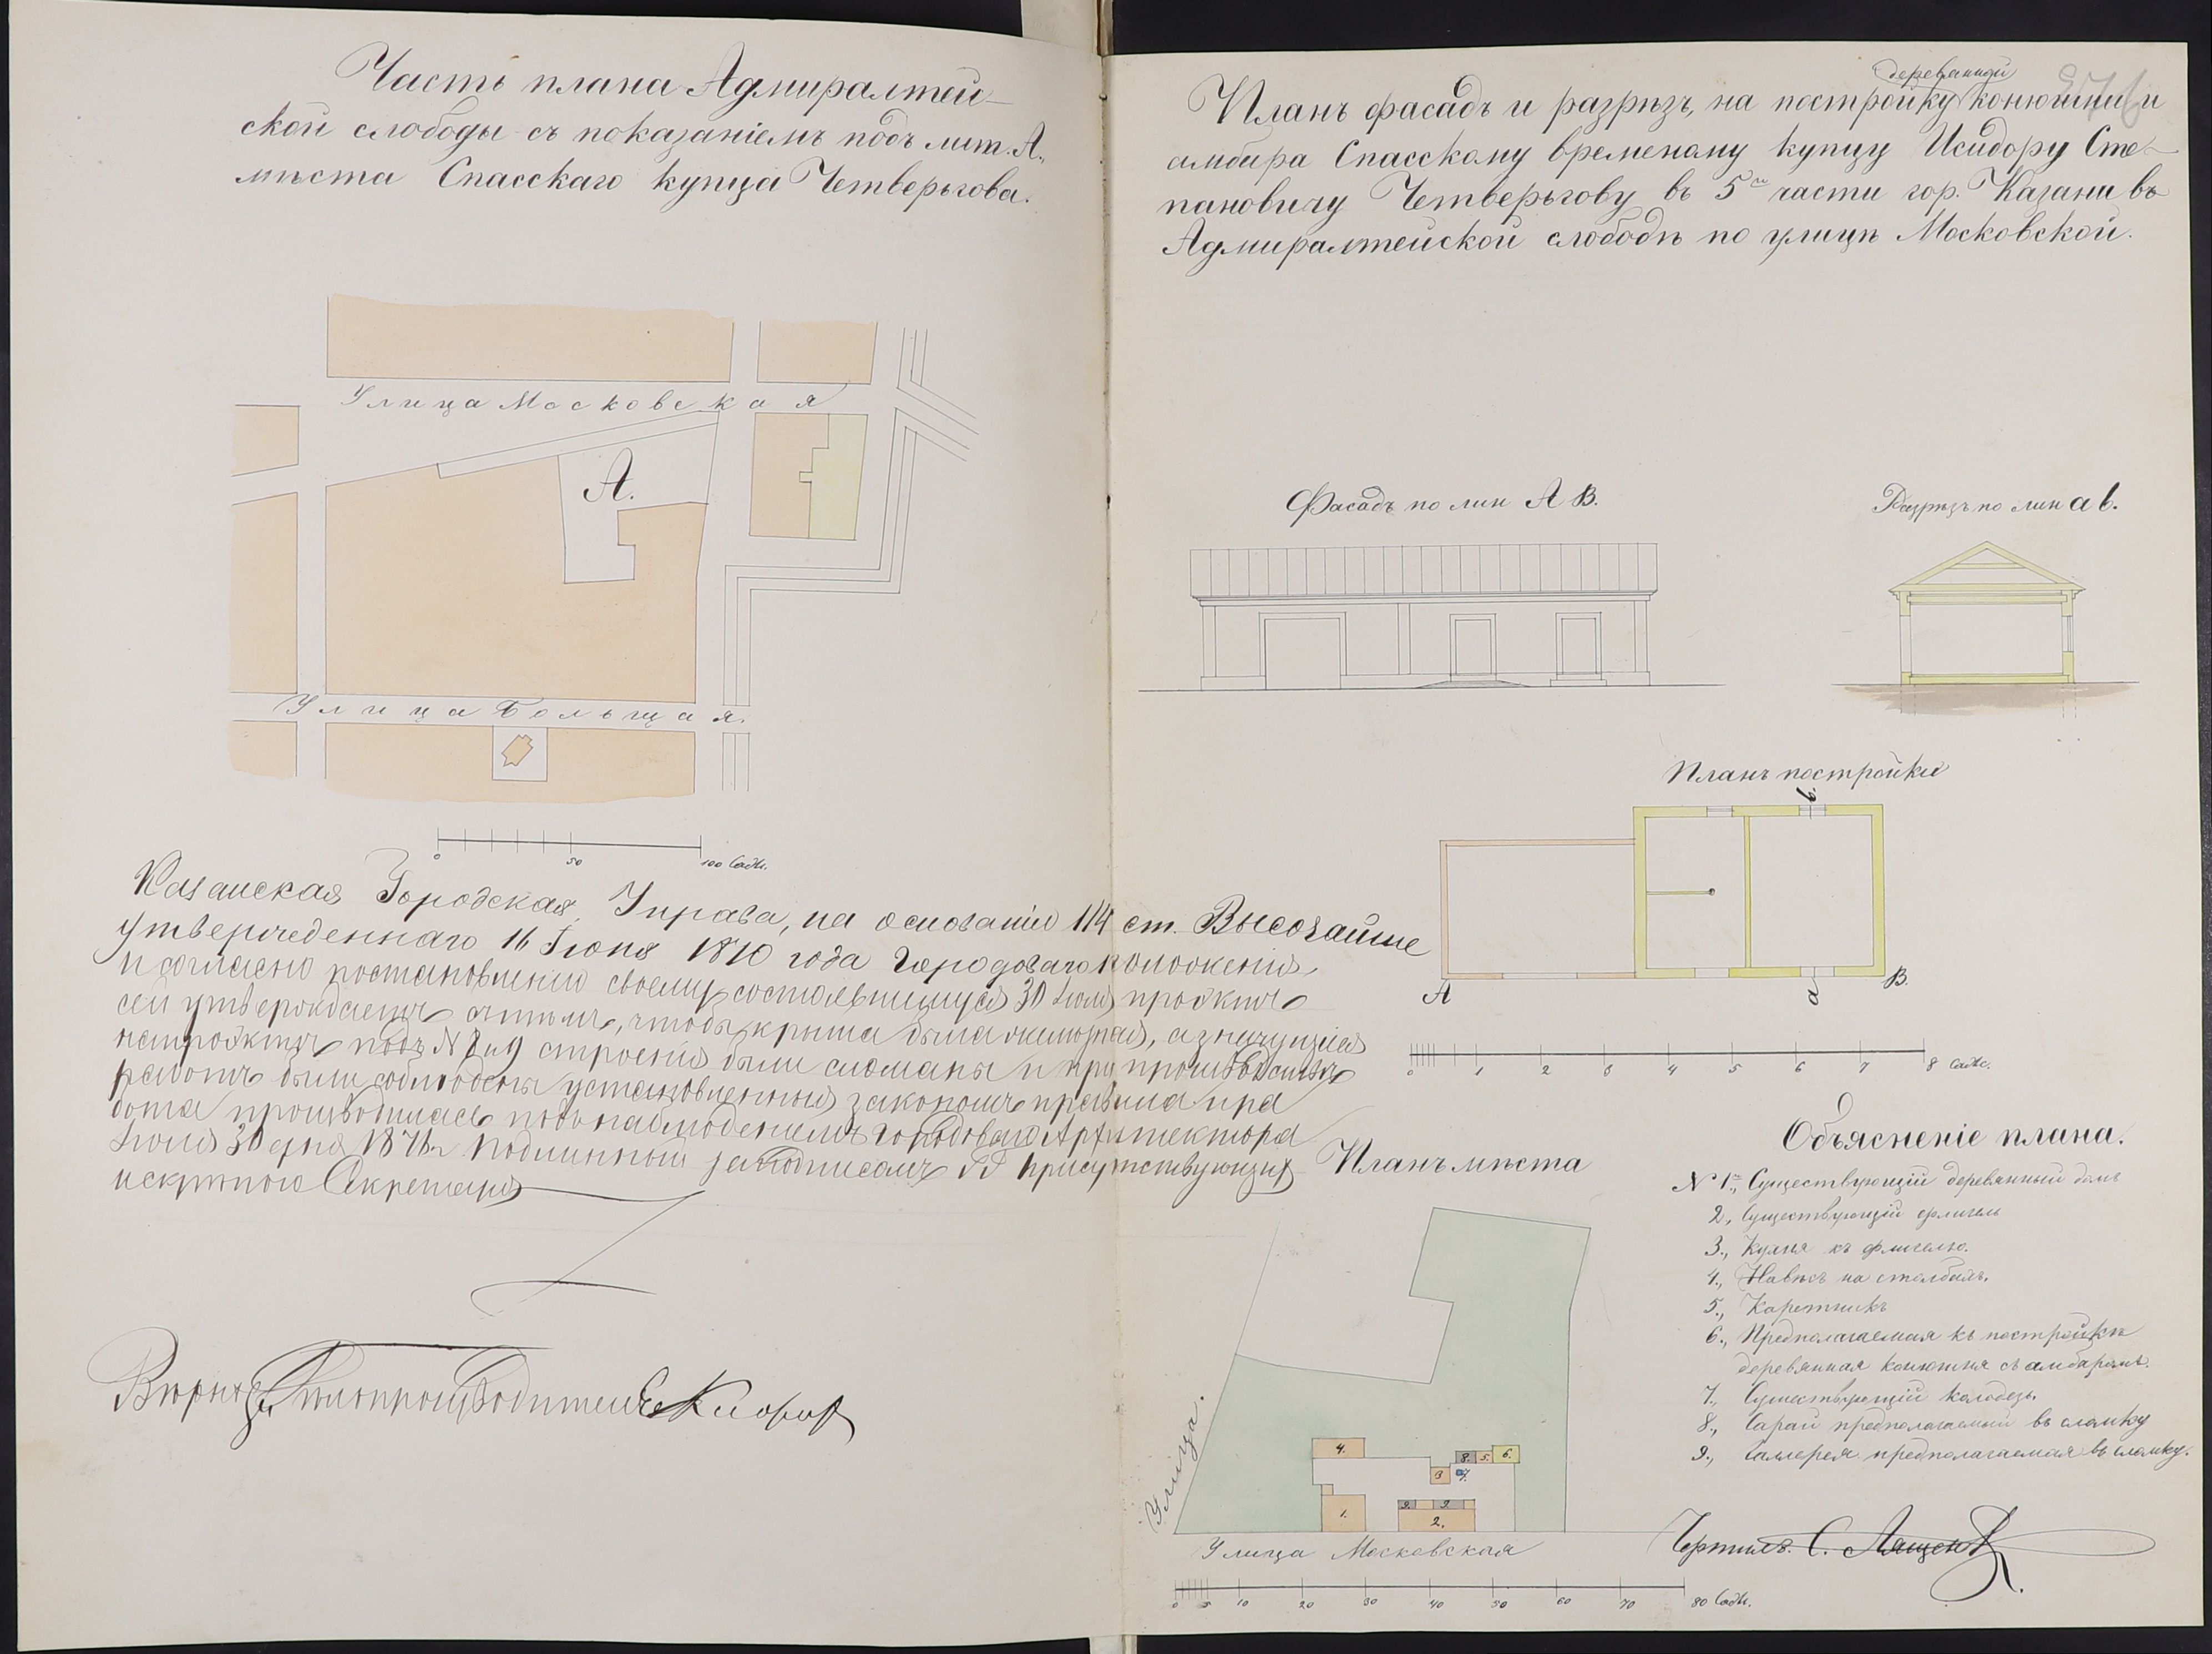 Часть плана Адмиралтей-
ской слободы съ показаніемъ подъ лит. А.,
мѣста Спасскаго купца Четверьгова.
Улица Московская
А.
Улица Большая.
0 50 100 Саж.
Казанская Городская Управа, на основаніи 114 ст. Высочайше
утвержденнаго 16 Іюня 1870 года Городоваго положенія,
и согласно постановленію своему, состоявшемуся 30 Іюля проэктъ
сей утверждаетъ съ тѣмъ, чтобы крыша была желѣзная, а значущіяся
на проэктѣ подъ № 8 и 9 строенія были сломаны и при производствѣ
работъ были соблюдены установленныя закономъ правила и ра
бота производилась подъ наблюденіемъ Городоваго Архитектора
Іюля 30 дня 187 г. Подлинный за подписомъ Г.Г. Присутствующихъ
и скрѣпою Секретаря
Вѣрно: Дѣлопроизводитель
деревянной
Планъ фасадъ и разрѣзъ, на постройку конюшни и
амбара Спасскому временному купцу Исидору Сте-
пановичу Четверьгову въ 5й части гор. Казани въ
Адмиралтейской слободѣ по улицѣ Московской.
Фасадъ по лин А В.
Разрѣзъ по лин а b.
Планъ постройки
b.
А
а
В.
0 1 2 3 4 5 6 7 8 Саж.
Объясненіе плана.
№ 1й., Существующій деревянный домъ
2., Существующій флигель
3., Кухня къ флигелю.
4., Навѣсъ на столбахъ.
5., Каретникъ
6., Предполагаемая къ постройкѣ
деревянная конюшня съ амбаромъ.
7., Существующій колодезь.
8., Сарай предполагаемый въ сломку
9., Галлерея предполагаемая въ сломку.
Планъ мѣста
4.
8. 5. 6.
3 7.
9. 9.
1.
2.
Улица.
Улица Московская
0 5 10 20 30 40 50 60 70 80 Саж.
Чертилъ. С.